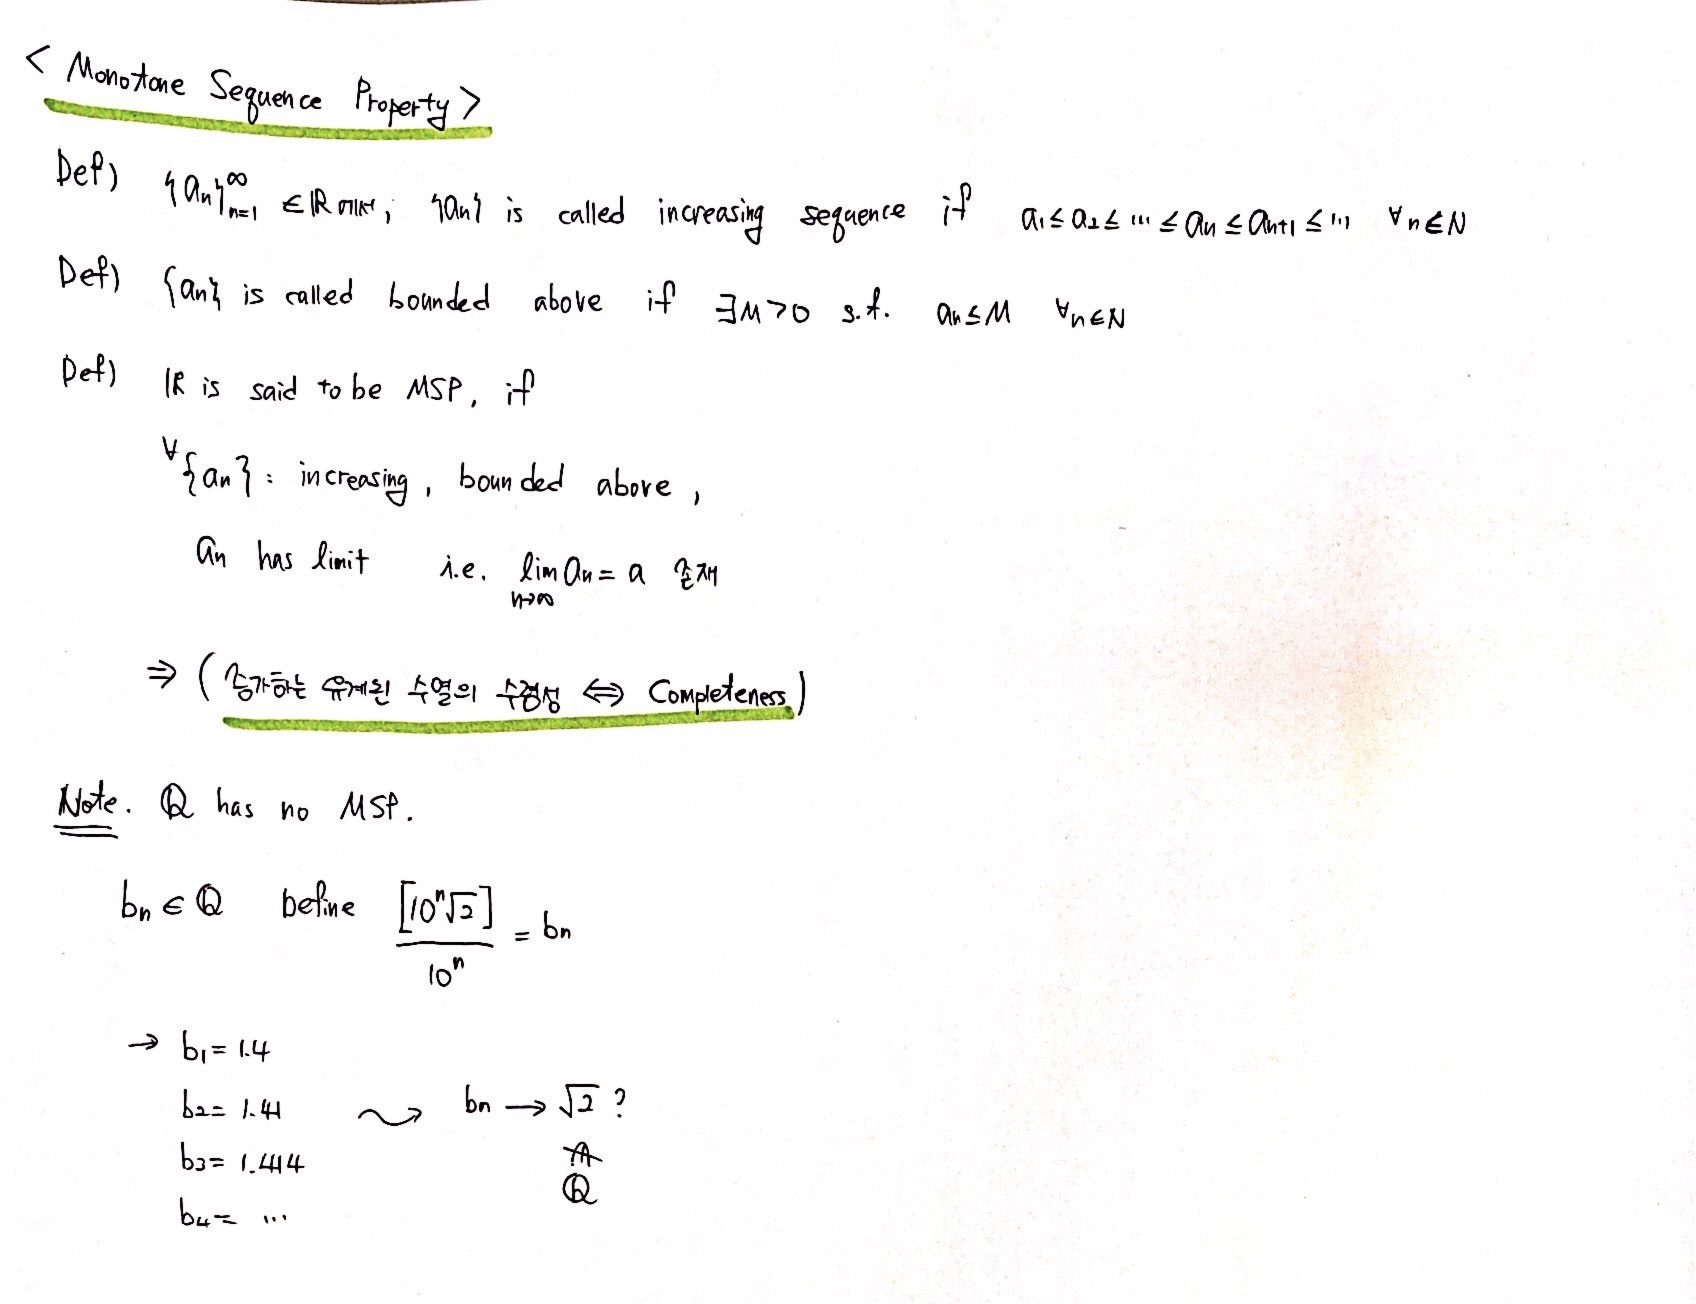 < Monotone Sequence Property >
Def) {an}∞n=1 ∈ ℝ에서, {an} is called increasing sequence if a1 ≤ a2 ≤ ... ≤ an ≤ an+1 ≤ ... ∀n∈N
Def) {an} is called bounded above if ∃M>0 s.t. an ≤ M ∀n∈N
Def) ℝ is said to be MSP, if
∀{an} : increasing, bounded above,
an has limit i.e. lim n→∞ an = a 존재
⇒ ( 증가하는 유계인 수열의 수렴성 ⇔ Completeness )
Note. ℚ has no MSP.
bn ∈ ℚ define [10ⁿ√2] / 10ⁿ = bn
→ b1 = 1.4
b2 = 1.41 ⇝ bn → √2 ?
b3 = 1.414 ∉ ℚ
b4 = ...